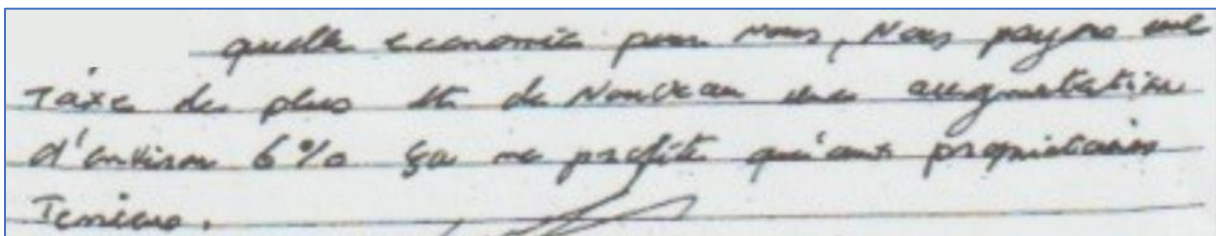 quelle economie pour nous, Nous payons une
Taxe de plus et de Nouveau une augmentation
d'environ 6% ça ne profite qu'aux propriétaires
Terriens.